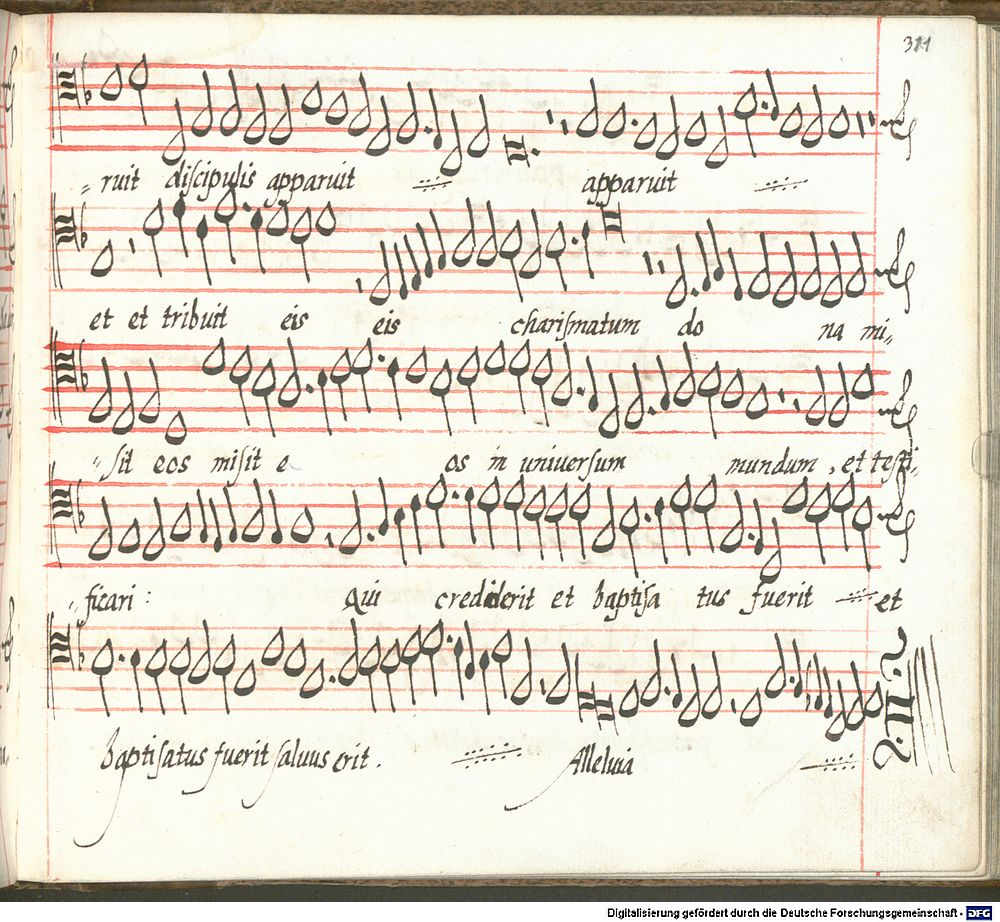 311
ruit discipulis apparuit apparuit
et et tribuit eis eis charismatum do na mi„
„sit eos misit e os in universum mundum , et testi„
„ficari : Qui crediderit et baptisa tus fuerit et
baptisatus fuerit salvus erit . Alleluia
Digitalisierung gefördert durch die Deutsche Forschungsgemeinschaft - DFG